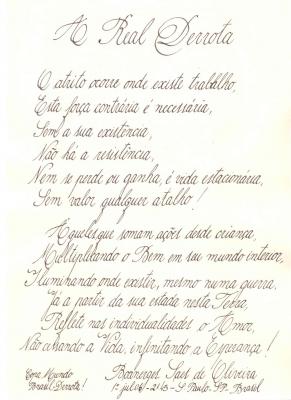 A Real Derrota
O atrito ocorre onde existe trabalho,
Esta força contrária é necessária,
Sem a sua existência,
Não há a resistência,
Nem se perde ou ganha, é vida estacionária,
Sem valor qualquer atalho!
Aqueles que somam ações desde criança,
Multiplicando o Bem em seu mundo interior,
Iluminando onde existir, mesmo numa guerra.
Já a partir da sua estada nesta Terra,
Reflete nas individualidades o Amor,
Não cessando a Vida, infinitando a Esperança!
Copa Mundo
Brasil Derrota!
Boanerges Saes de Oliveira
S. Paulo - SP - Brasil